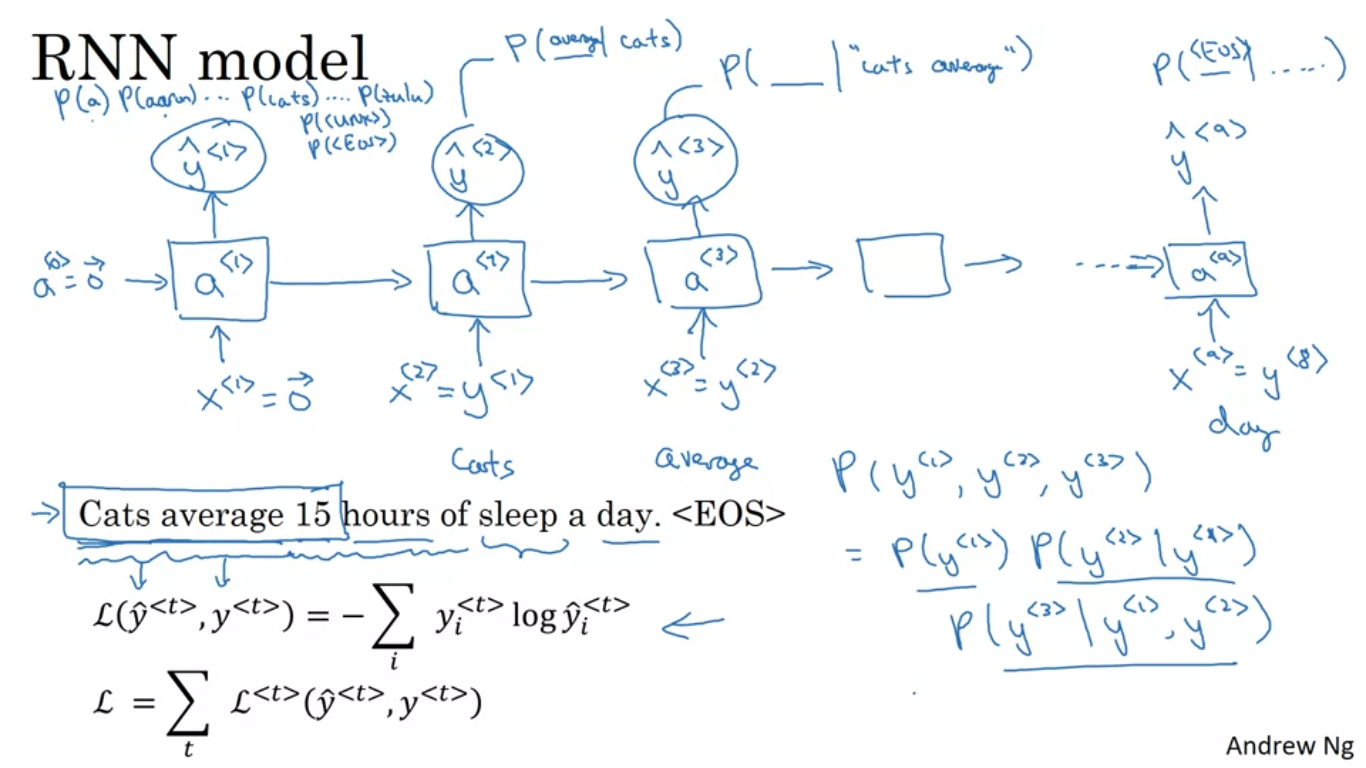 RNN model
P(a) P(aaron) ... P(cats) .... P(zulu)
P(<UNK>)
P(<EOS>)
P(average | cats)
P( __ | "cats average")
P(<EOS> | .....)
ŷ<1>
ŷ<2>
ŷ<3>
ŷ<9>
a<0> = 0⃗
a<1>
a<2>
a<3>
a<9>
x<1> = 0⃗
x<2> = y<1>
x<3> = y<2>
x<9> = y<8>
Cats
average
day
Cats average 15 hours of sleep a day. <EOS>
ℒ(ŷ<t>, y<t>) = − ∑ᵢ yᵢ<t> log ŷᵢ<t>
ℒ = ∑ₜ ℒ<t>(ŷ<t>, y<t>)
P(y<1>, y<2>, y<3>)
= P(y<1>) P(y<2> | y<1>)
P(y<3> | y<1>, y<2>)
Andrew Ng